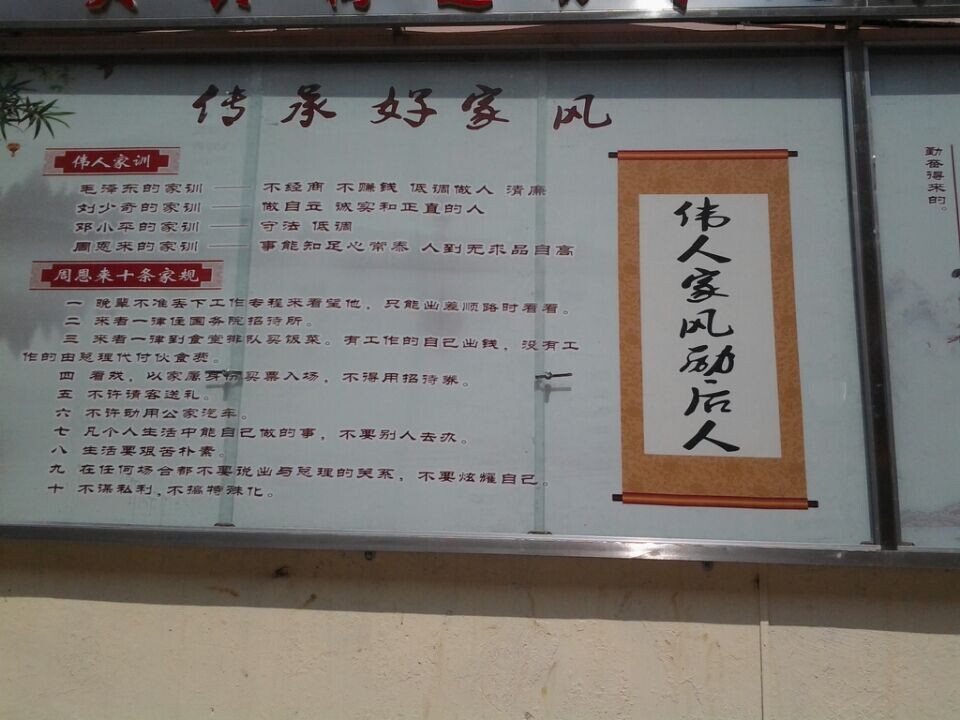 传承好家风
伟人家训
毛泽东的家训 —— 不经商 不赚钱 低调做人 清廉
刘少奇的家训 —— 做自立 诚实和正直的人
邓小平的家训 —— 守法 低调
周恩来的家训 —— 事能知足心常泰 人到无求品自高
周恩来十条家规
一 晚辈不准丢下工作专程来看望他，只能出差顺路时看看。
二 来者一律住国务院招待所。
三 来者一律到食堂排队买饭菜。有工作的自己出钱，没有工
作的由总理代付伙食费。
四 看戏，以家属身份买票入场，不得用招待券。
五 不许请客送礼。
六 不许动用公家汽车。
七 凡个人生活中能自己做的事，不要别人去办。
八 生活要艰苦朴素。
九 在任何场合都不要说出与总理的关系，不要炫耀自己。
十 不谋私利,不搞特殊化。
伟人家风励后人
勤奋得来的。